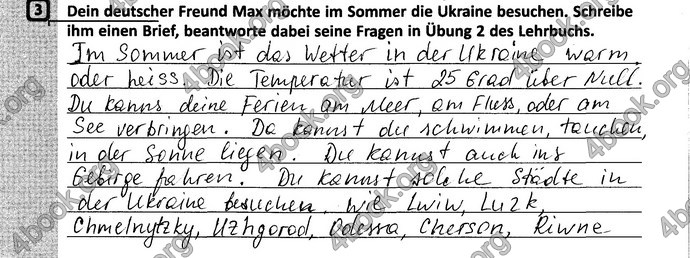 3 Dein deutscher Freund Max möchte im Sommer die Ukraine besuchen. Schreibe
ihm einen Brief, beantworte dabei seine Fragen in Übung 2 des Lehrbuchs.
Im Sommer ist das Wetter in der Ukraine warm
oder heiss. Die Temperatur ist 25 Grad über Null.
Du kanns deine Ferien am Meer, am Fluss, oder am
See verbringen. Da kannst du schwimmen, tauchen,
in der Sonne liegen. Du kannst auch ins
Gebirge fahren. Du kannst solche Städte in
der Ukraine besuchen, wie Lwiw, Luzk,
Chmelnytzky, Uzhgorod, Odessa, Cherson, Riwne
4book.org
4book.org
4book.org
4book.org
4book.org